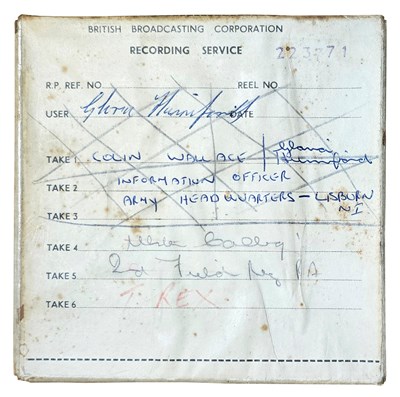 BRITISH BROADCASTING CORPORATION
RECORDING SERVICE
223271
R.P. REF. NO
REEL NO
USER DATE
TAKE 1 COLIN WALLACE /
TAKE 2 INFORMATION OFFICER
TAKE 3 ARMY HEADQUARTERS - LISBURN
NI
TAKE 4
TAKE 5 2nd Field Reg RA
TAKE 6 T. REX